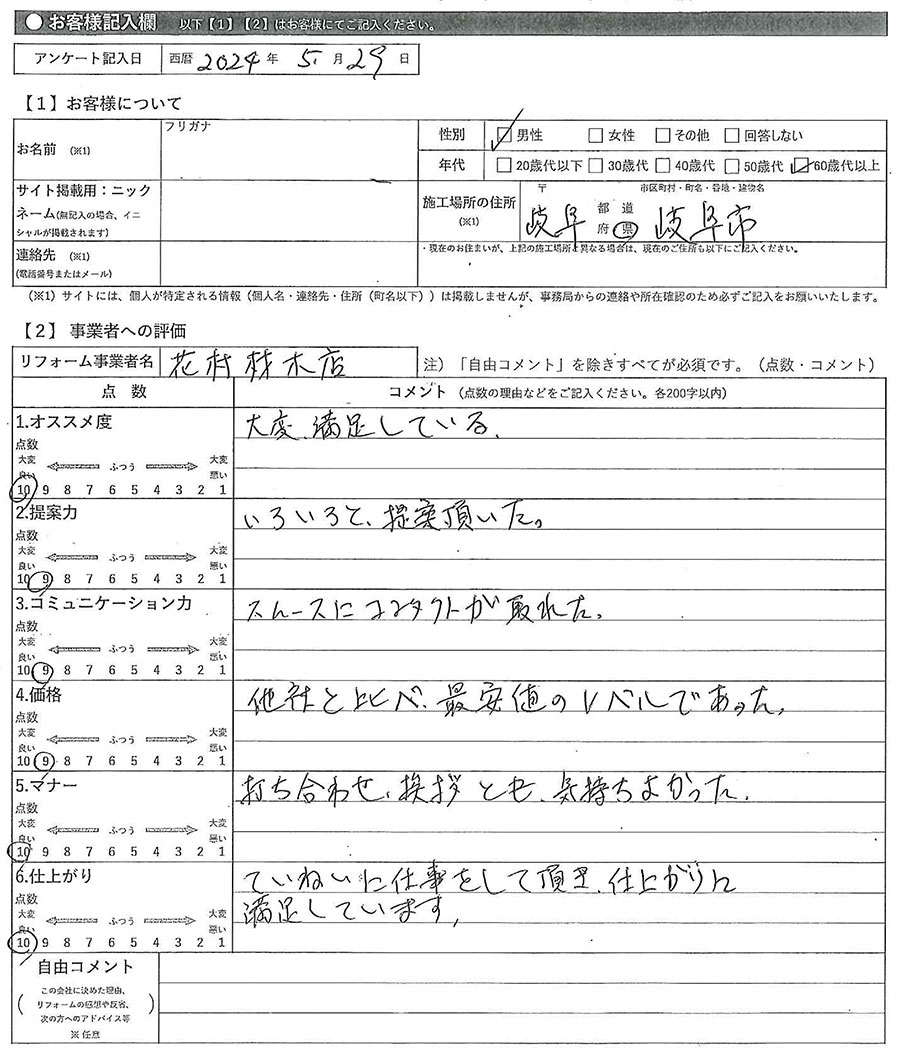 ● お客様記入欄 以下【1】【2】はお客様にてご記入ください。
アンケート記入日 西暦 2024 年 5 月 29 日
【1】お客様について
お名前 (※1) フリガナ
性別 □男性 □女性 □その他 □回答しない
年代 □20歳代以下 □30歳代 □40歳代 □50歳代 □60歳代以上
サイト掲載用:ニックネーム(無記入の場合、イニシャルが掲載されます)
施工場所の住所 (※1) 〒 岐阜 都 道 府 県 市区町村・町名・番地・建物名 岐阜市
・現在のお住まいが、上記の施工場所と異なる場合は、現在のご住所も以下にご記入ください。
連絡先 (※1)
(電話番号またはメール)
(※1)サイトには、個人が特定される情報(個人名・連絡先・住所(町名以下))は掲載しませんが、事務局からの連絡や所在確認のため必ずご記入をお願いいたします。
【2】事業者への評価
リフォーム事業者名 花村材木店 注)「自由コメント」を除きすべてが必須です。(点数・コメント)
点 数 コメント (点数の理由などをご記入ください。各200字以内)
1.オススメ度 大変、満足している。
点数
大変良い ふつう 大変悪い
10 9 8 7 6 5 4 3 2 1
2.提案力 いろいろと、提案頂いた。
点数
大変良い ふつう 大変悪い
10 9 8 7 6 5 4 3 2 1
3.コミュニケーション力 スムースにコンタクトが取れた。
点数
大変良い ふつう 大変悪い
10 9 8 7 6 5 4 3 2 1
4.価格 他社と比べ、最安値のレベルであった。
点数
大変良い ふつう 大変悪い
10 9 8 7 6 5 4 3 2 1
5.マナー 打ち合わせ、挨拶とも、気持ちよかった。
点数
大変良い ふつう 大変悪い
10 9 8 7 6 5 4 3 2 1
6.仕上がり ていねいに仕事をして頂き、仕上がりに
満足しています。
点数
大変良い ふつう 大変悪い
10 9 8 7 6 5 4 3 2 1
自由コメント
(この会社に決めた理由、
リフォームの感想や反省、
次の方へのアドバイス等)
※任意